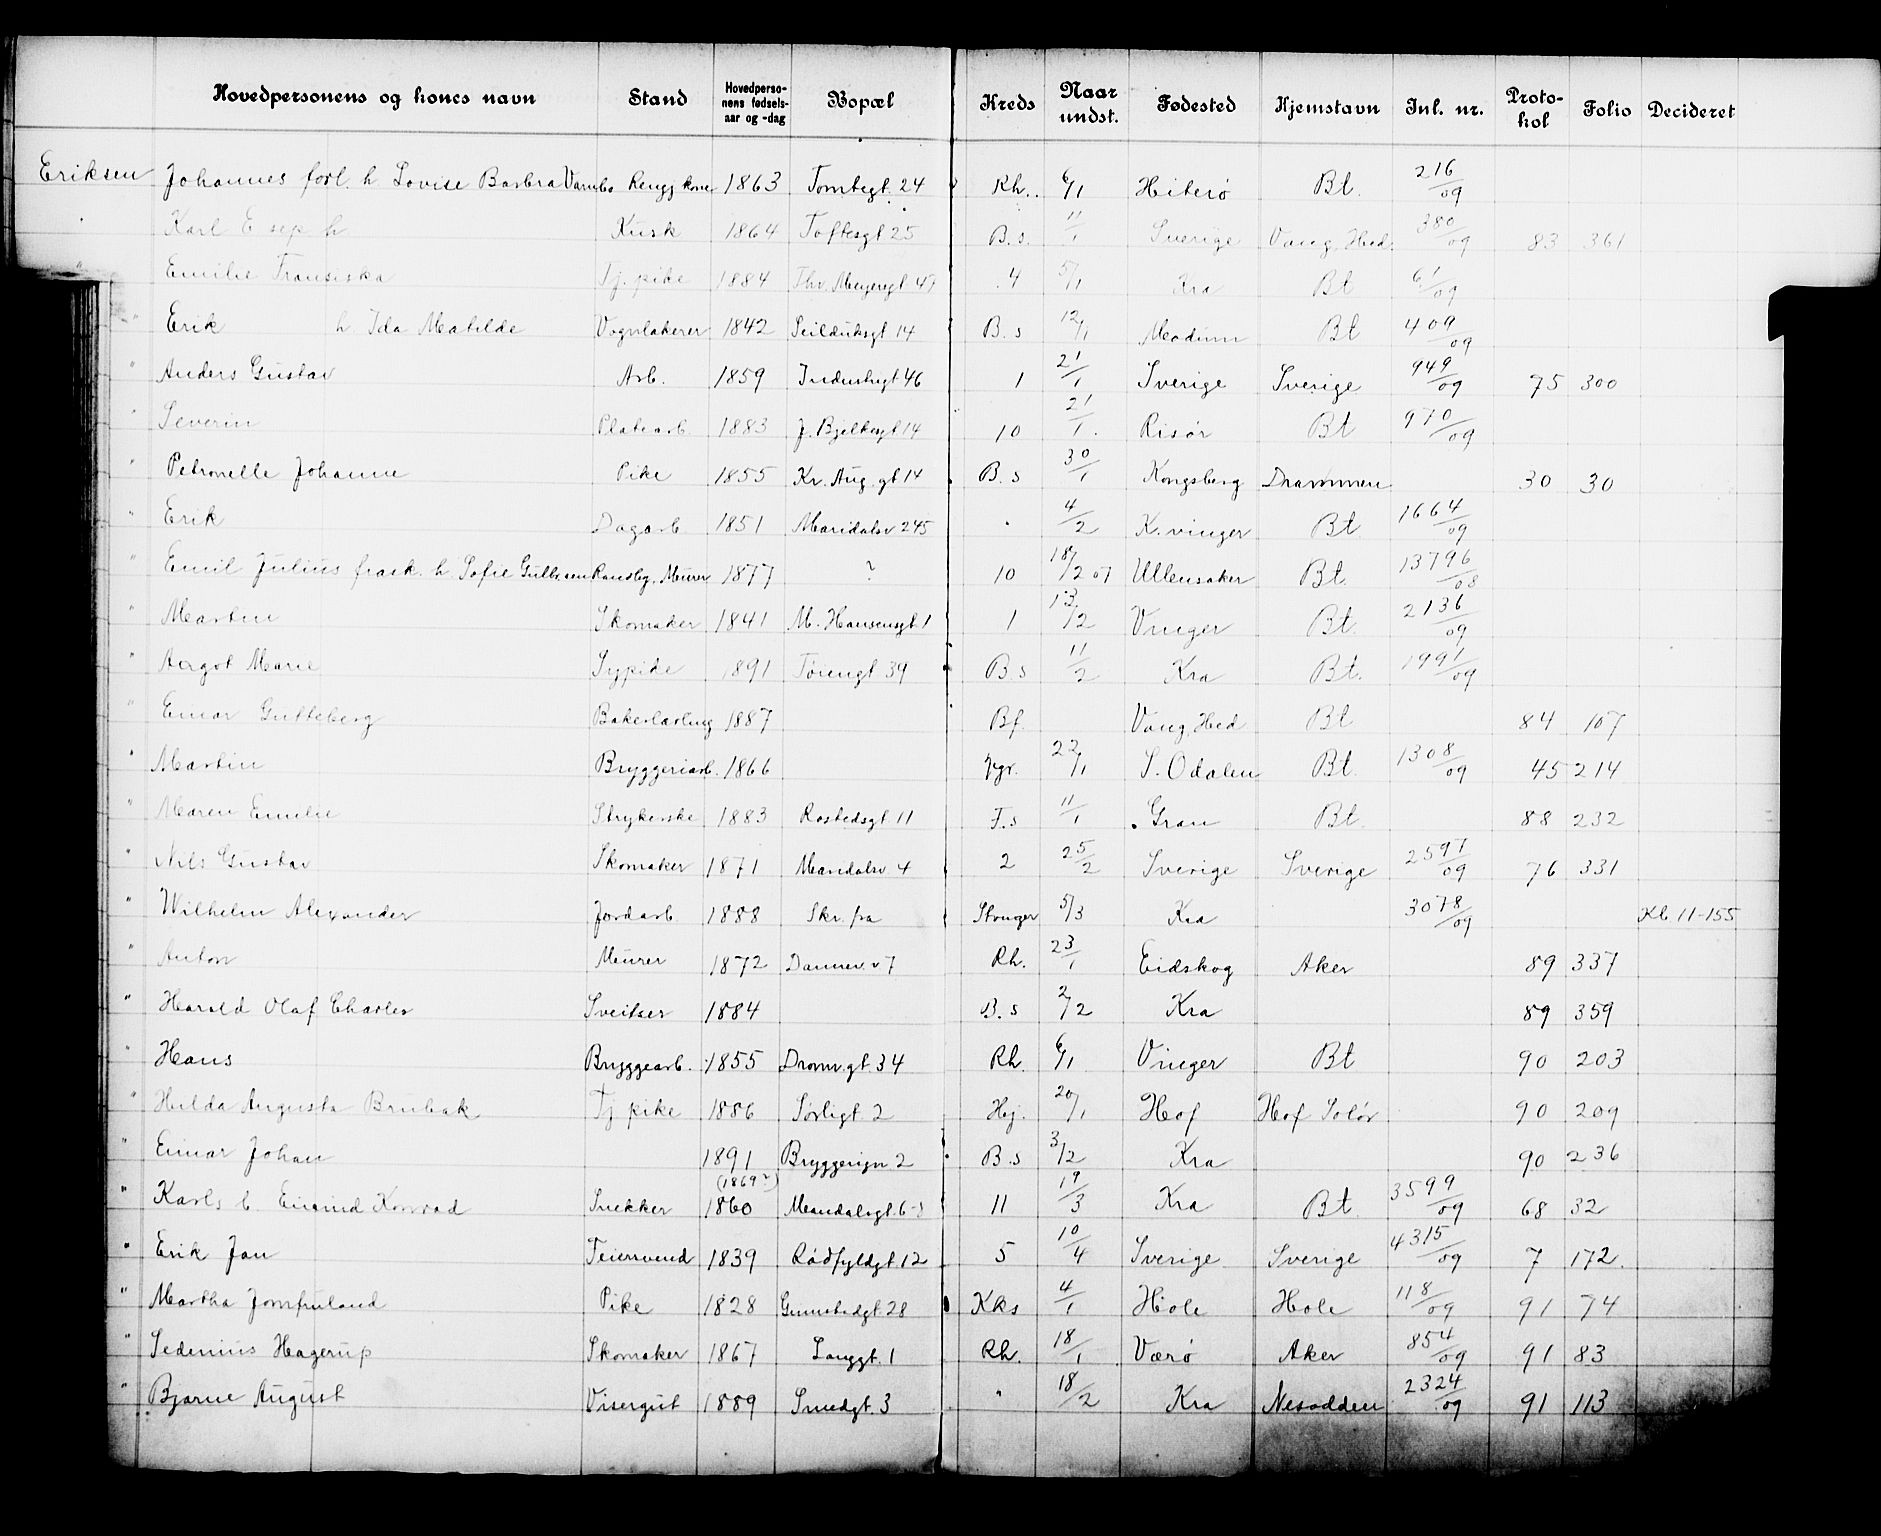 Hovedpersonens og kones navn Stand Hovedpersonens fødselsaar og -dag Bopæl Kreds Naar undst. Fødested Hjemstavn Inl. nr. Protokol Folio Decideret
Eriksen Johannes forl. h Lovise Barbra Rengj kone 1863 Tomtegt. 24 Rh. 6/1 Hiterø Bt. 216/09
Karl E sep h Kusk 1864 Toftesgt 25 B.s. 11/1 Sverige Vang, Hed. 380/09 83 361
" Emilie Fransiska Tj. pike 1884 Thv. Meyersgt 47 4 5/1 Kra Bt 61/09
" Erik h. Ida Matilde Vognlakerer 1842 Seilduksgt 14 B.s 12/1 Modum Bt 409/09
" Anders Gustav Arb. 1859 Industrigt 46 1 21/1 Sverige Sverige 949/09 75 300
" Severin Platearb. 1883 J. Bjelkesgt 14 10 21/1. Risør Bt 970/09
" Petronelle Johanne Pike 1855 Kr. Aug. gt 14 B.s 30/1 Kongsberg Drammen 30 30
" Erik Dagarb 1851 Maridalsv 245 " 4/2 K.vinger Bt. 1664/09
" Emil Julius frask. h Sofie Gulbrnsen Ransbg, Murer 1877 ? 10 18/2 07 Ullensaker Bt. 13796/08
" Martin Skomaker 1841 M. Hansensgt. 1 1 13/2 Vinger Bt. 2136/09
" Aagot Marie Sypike 1891 Torengt 39 B.s 11/2 Kra Bt. 1991/09
" Einar Gutteberg Bakerlærling 1887 Bf. Vang, Hed Bt 84 107
" Martin Bryggeriarb. 1866 22/1 S. Odalen Bt. 1308/09 45 214
" Maren Emilie Strykerske 1883 Rostedsgt 11 F.s 11/1 Gran Bt. 88 232
" Nils Gustav Skomaker 1871 Maridalsv 4 2 25/2 Sverige Sverige 2597/09 76 331
" Wilhelm Alexander Jordarb. 1888 Skr. fra Stvnger 5/3 Kra 3078/09 Kb 11-155
" Anton Murer 1872 Dannev. v 7 Rh. 23/1 Eidskog Aker 89 337
" Harald Olaf Charles Sveitser 1884 B.s 2/2 Kra 89 359
" Hans Bryggearb. 1855 Dramm.gt. 34 Rh. 6/1 Vinger Bt 90 203
" Hilda Augusta Brubak Tj pike 1886 Sørligt 2 Hej. 20/1 Hof Hof Solør 90 209
" Einar Johan 1891 Bryggerign 2 B.s 3/2 Kra 90 236
" Karls b. Eivind Konrad Snekker (1869?) 1860 Mandalsgt. 6-8 11 19/3 Kra Bt. 3599/09 68 32
" Erik Jan Feiersvend 1839 Rødfyldgt. 12 5 10/4 Sverige Sverige 4315/09 7 172.
" Martha Jomfruland Pike 1828 Grimstadgt. 28 Kks 4/1 Hole Hole 118/09 91 74
" Sedenius Hagerup Skomaker 1867 Langgt. 1 Rh. 18/1 Værø Aker 854/09 91 83
" Bjarne August Visergut 1889 Smedgt. 3 " 18/2 Kra Nesodden 2324/09 91 113